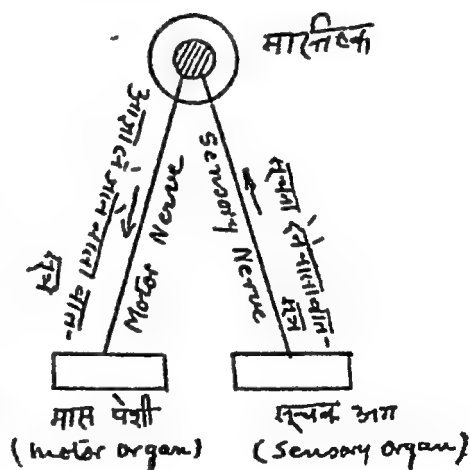 मास्तिष्क
आज्ञा ले जाने वाला वात-
सूत्र
Motor Nerve
Sensory Nerve
सूचना देने वाला वात-
सूत्र
मास पेशी
(motor organ)
सूचक अग
(Sensory organ)